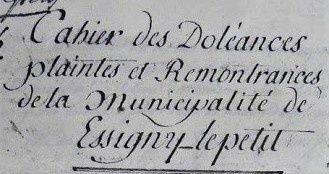 Cahier des Doléances
plaintes et Remontrances
de la municipalité de
Essigny-lepetit